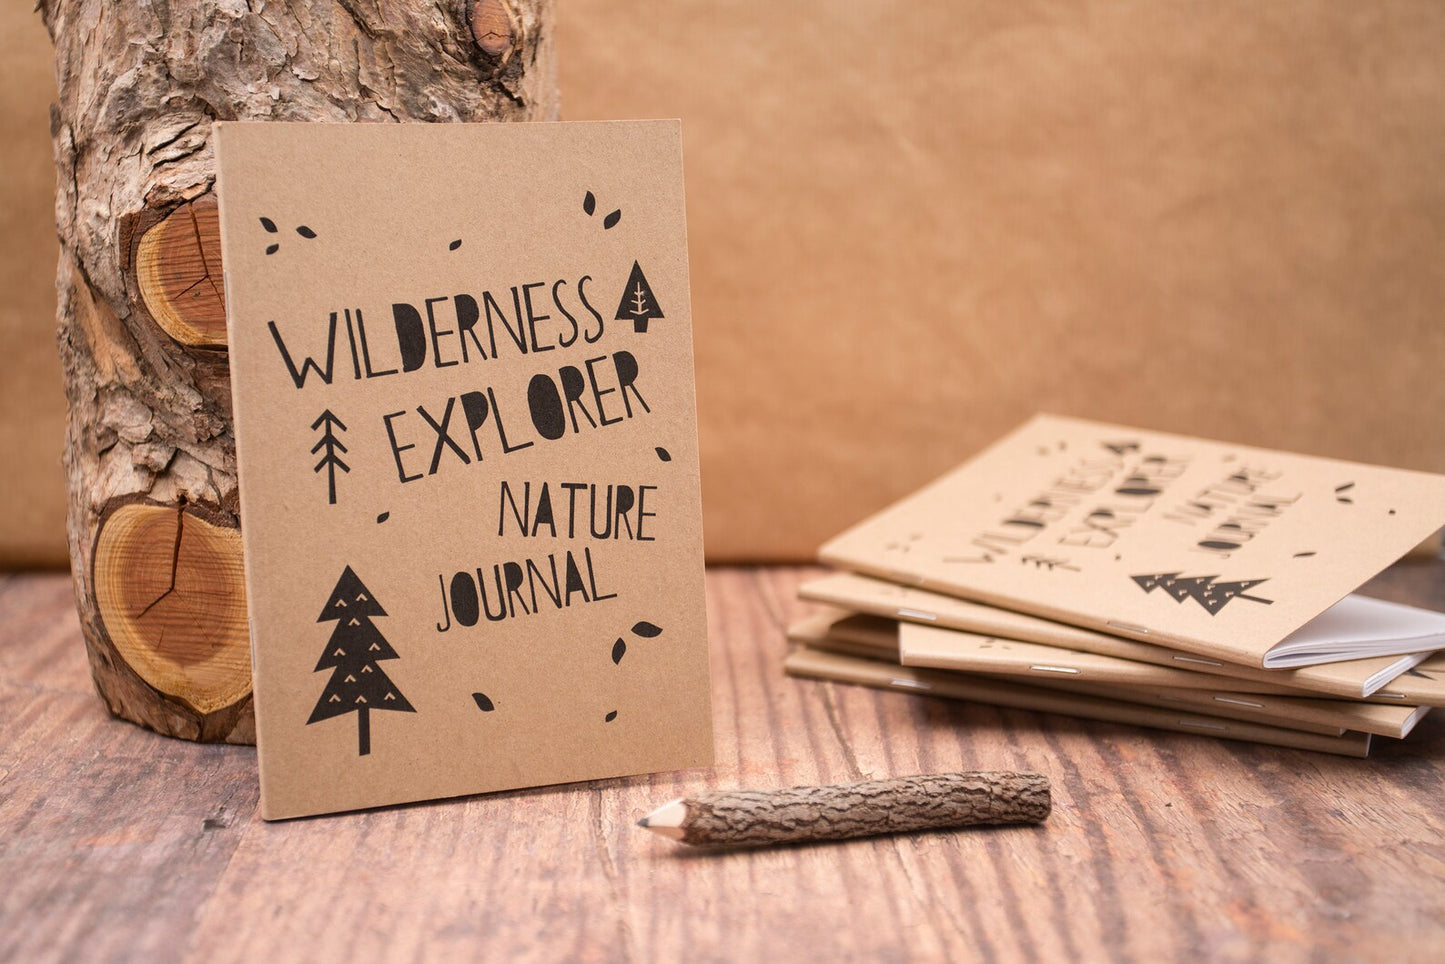 WILDERNESS
EXPLORER
NATURE
JOURNAL
WILDERNESS
EXPLORER
NATURE
JOURNAL